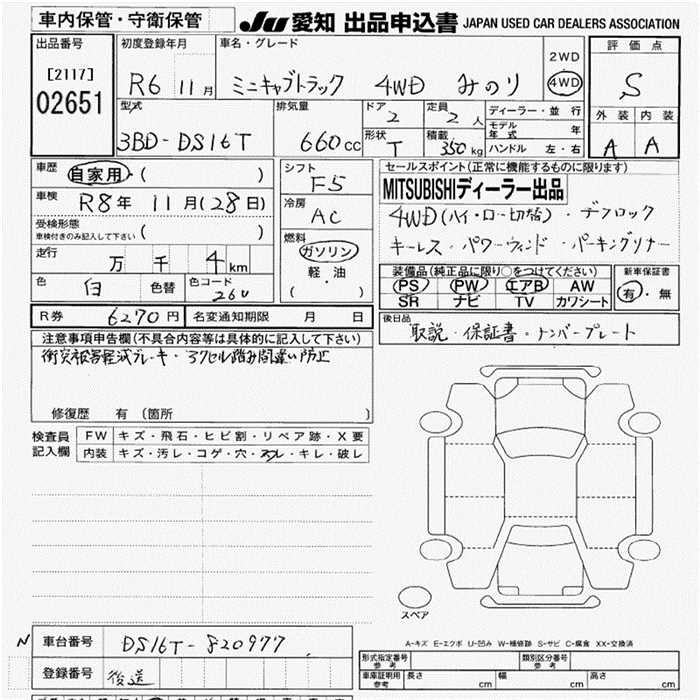 車内保管・守衛保管 JU 愛知 出品申込書 JAPAN USED CAR DEALERS ASSOCIATION
出品番号 [2117] 02651
初度登録年月 R6 11月
車名・グレード ミニキャブトラック 4WD みのり
2WD 4WD
評価点 S
外装 A 内装 A
型式 3BD-DS16T
排気量 660cc
ドア 2 定員 2人
形状 T 積載 350kg
ディーラー・並行
モデル年式 年
ハンドル 左・右
車歴 自家用・( )
車検 R8年 11月(28日)
受検形態 車検付きのみ記入して下さい ( )
走行 万 千 4km
色 白 色替 色コード 26U
シフト F5
冷房 AC
燃料 ガソリン 軽・油 ( )
セールスポイント(正常に機能するものに限ります)
MITSUBISHIディーラー出品
4WD(ハイ・ロー切替)・デフロック
キーレス・パワーウィンド・パーキングソナー
装備品(純正品に限り○をつけてください)
PS PW エアB AW
SR ナビ TV カワシート
新車保証書 有・無
R券 6270円 名変通知期限 月 日
後日品 取説・保証書・ナンバープレート
注意事項申告欄(不具合内容等は具体的に記入して下さい)
衝突被害軽減ブレーキ・アクセル踏み間違い防止
修復歴 有(箇所 )
検査員記入欄
FW キズ・飛石・ヒビ割・リペア跡・X要
内装 キズ・汚レ・コゲ・穴・スレ・キレ・破レ
スペア
N 車台番号 DS16T-820977
登録番号 後送
A-キズ E-エクボ U-凹み W-補修跡 S-サビ C-腐食 XX-交換済
形式指定番号 参考 類別区分番号 参考
車庫証明用 参考 長さ cm 幅 cm 高さ cm